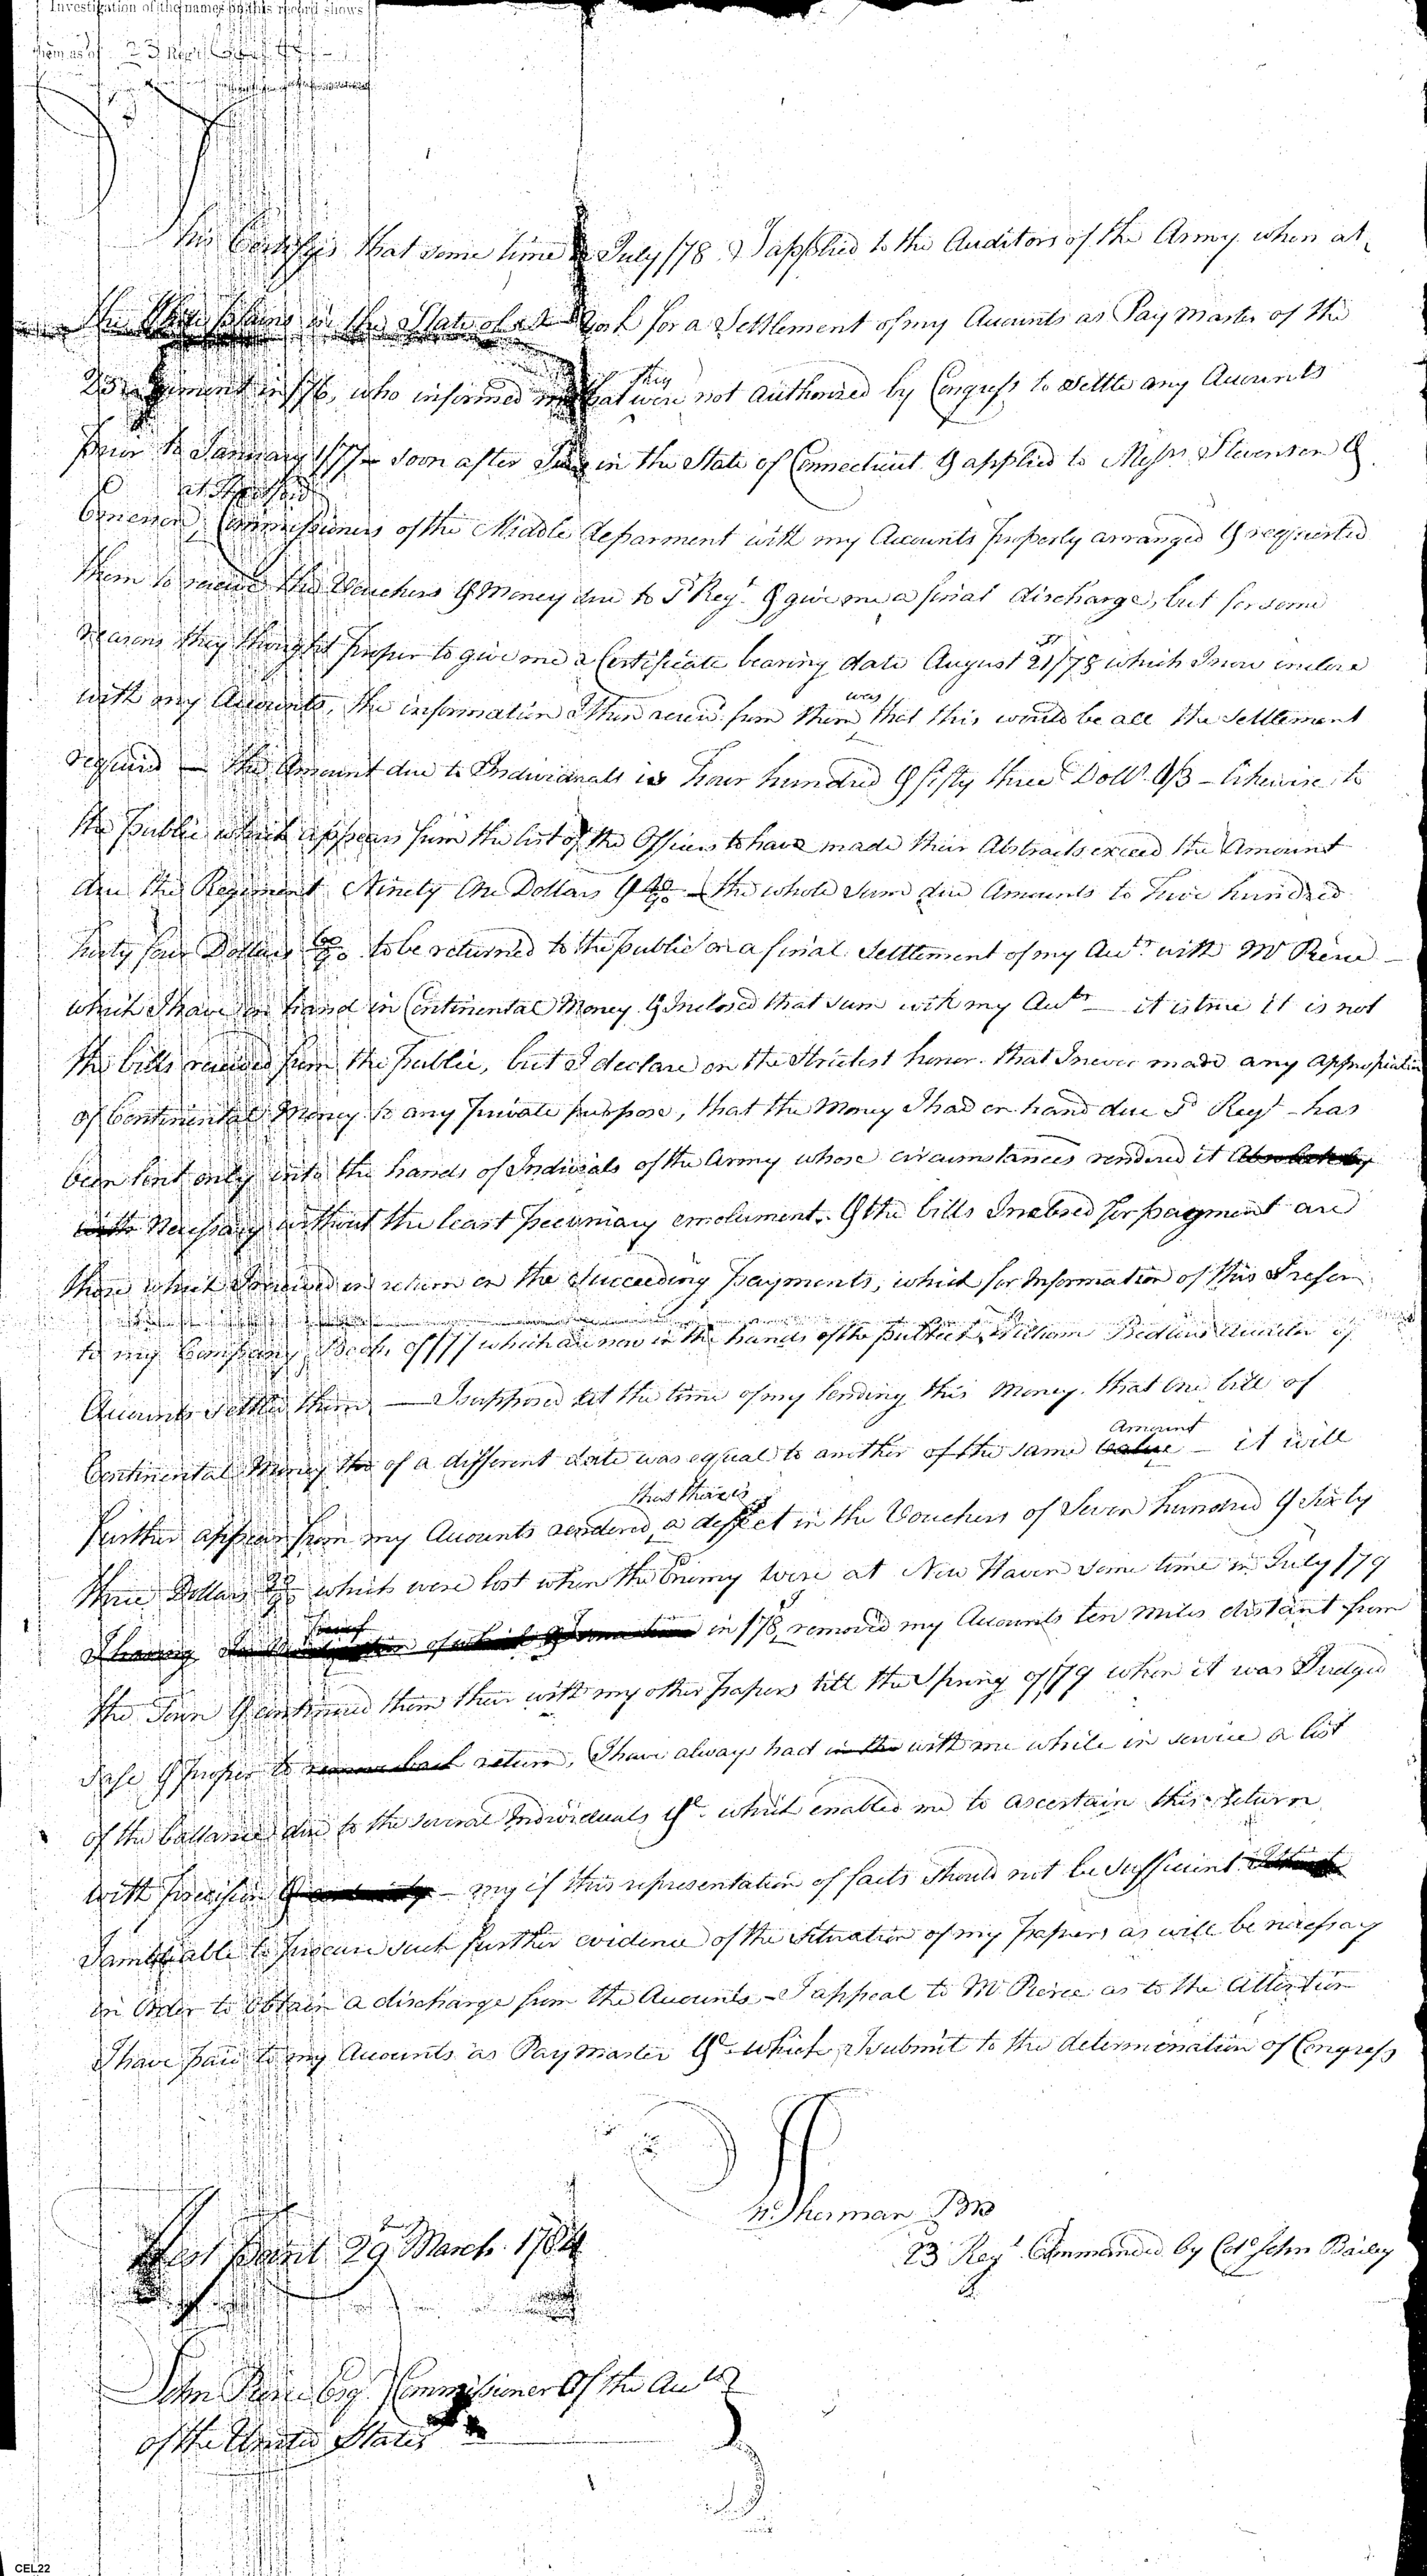 Investigation of the names on this record shows
them as of 23
This Certifyes that some time in July 178 I applied to the Auditors of the Army when at
the White plains in the State of New York for a Settlement of my Accounts as Pay Master of the
23 Regiment in 176, who informed me that they were not authorized by Congress to settle any Accounts
prior to January 177 — Soon after I was in the State of Connecticut & applied to Messrs Stevenson &
at Hartford
Commissioners of the Middle deparment with my Accounts properly arranged & requested
them to receive the Vouchers & Money due to sd Regt & give me a final discharge, but for some
reasons they thought proper to give me a Certificate bearing date August 21st /78 which I now inclose
with my Accounts, the information I then receivd from them was, that this would be all the Settlement
required — the Amount due to Individuals is Four hundred & fifty three Dollrs 1/3 — likewise to
the public which appears from the list of the Officers to have made their Abstracts exceed the Amount
due the Regiment Ninety One Dollars & 40/90 — the whole sum due Amounts to Five hundred
forty four Dollars 60/90 to be returned to the public on a final Settlement of my Accts with Mr Pierce —
which I have on hand in Continental Money & Inclosed that sum with my Accts — it is true it is not
the bills received from the public, but I declare on the Strictest honor that I never made any appropriation
of Continental Money to any private purpose, that the Money I had on hand due sd Regt — has
been lent only into the hands of Indivials of the Army whose circumstances rendered it Absolutely
with Necessary without the least pecuniary emolument. & the bills Inclosed for payment are
those which I received in return on the Succeeding payments, which for Information of this I refer
to my Company Books of 177 which are now in the hands of the public, William Bedlow Auditor of
Accounts settled them — I supposed at the time of my lending this Money that one bill of
Continental Money tho of a different date was equal to another of the same value Amount — it will
further appear from my Accounts rendered, that there is a deffect in the Vouchers of Seven hundred & Sixty
three Dollars which were lost when the Enemy were at New Haven some time in July 179
I having in 178, removed my Accounts ten Miles distant from
the Town & continued them there with my other papers till the Spring of 179 when it was Judged
safe & proper to remove back return, I have always had in the with me while in service a list
of the ballances due to the several Individuals &c. which enabled me to ascertain this return
with precision & — my if this representation of facts should not be sufficient
I am able to procure such further evidence of the Situation of my papers as will be necessay
in Order to obtain a discharge from the Accounts — I appeal to Mr Pierce as to the Attention
I have paid to my Accounts as Pay Master &c which I submit to the determination of Congress
Sherman PM
23 Regt Commanded by Colo John Bailey
West Point 29th March 1784
John Pierce Esqr Commissioner Of the Accts
of the United States
CEL22